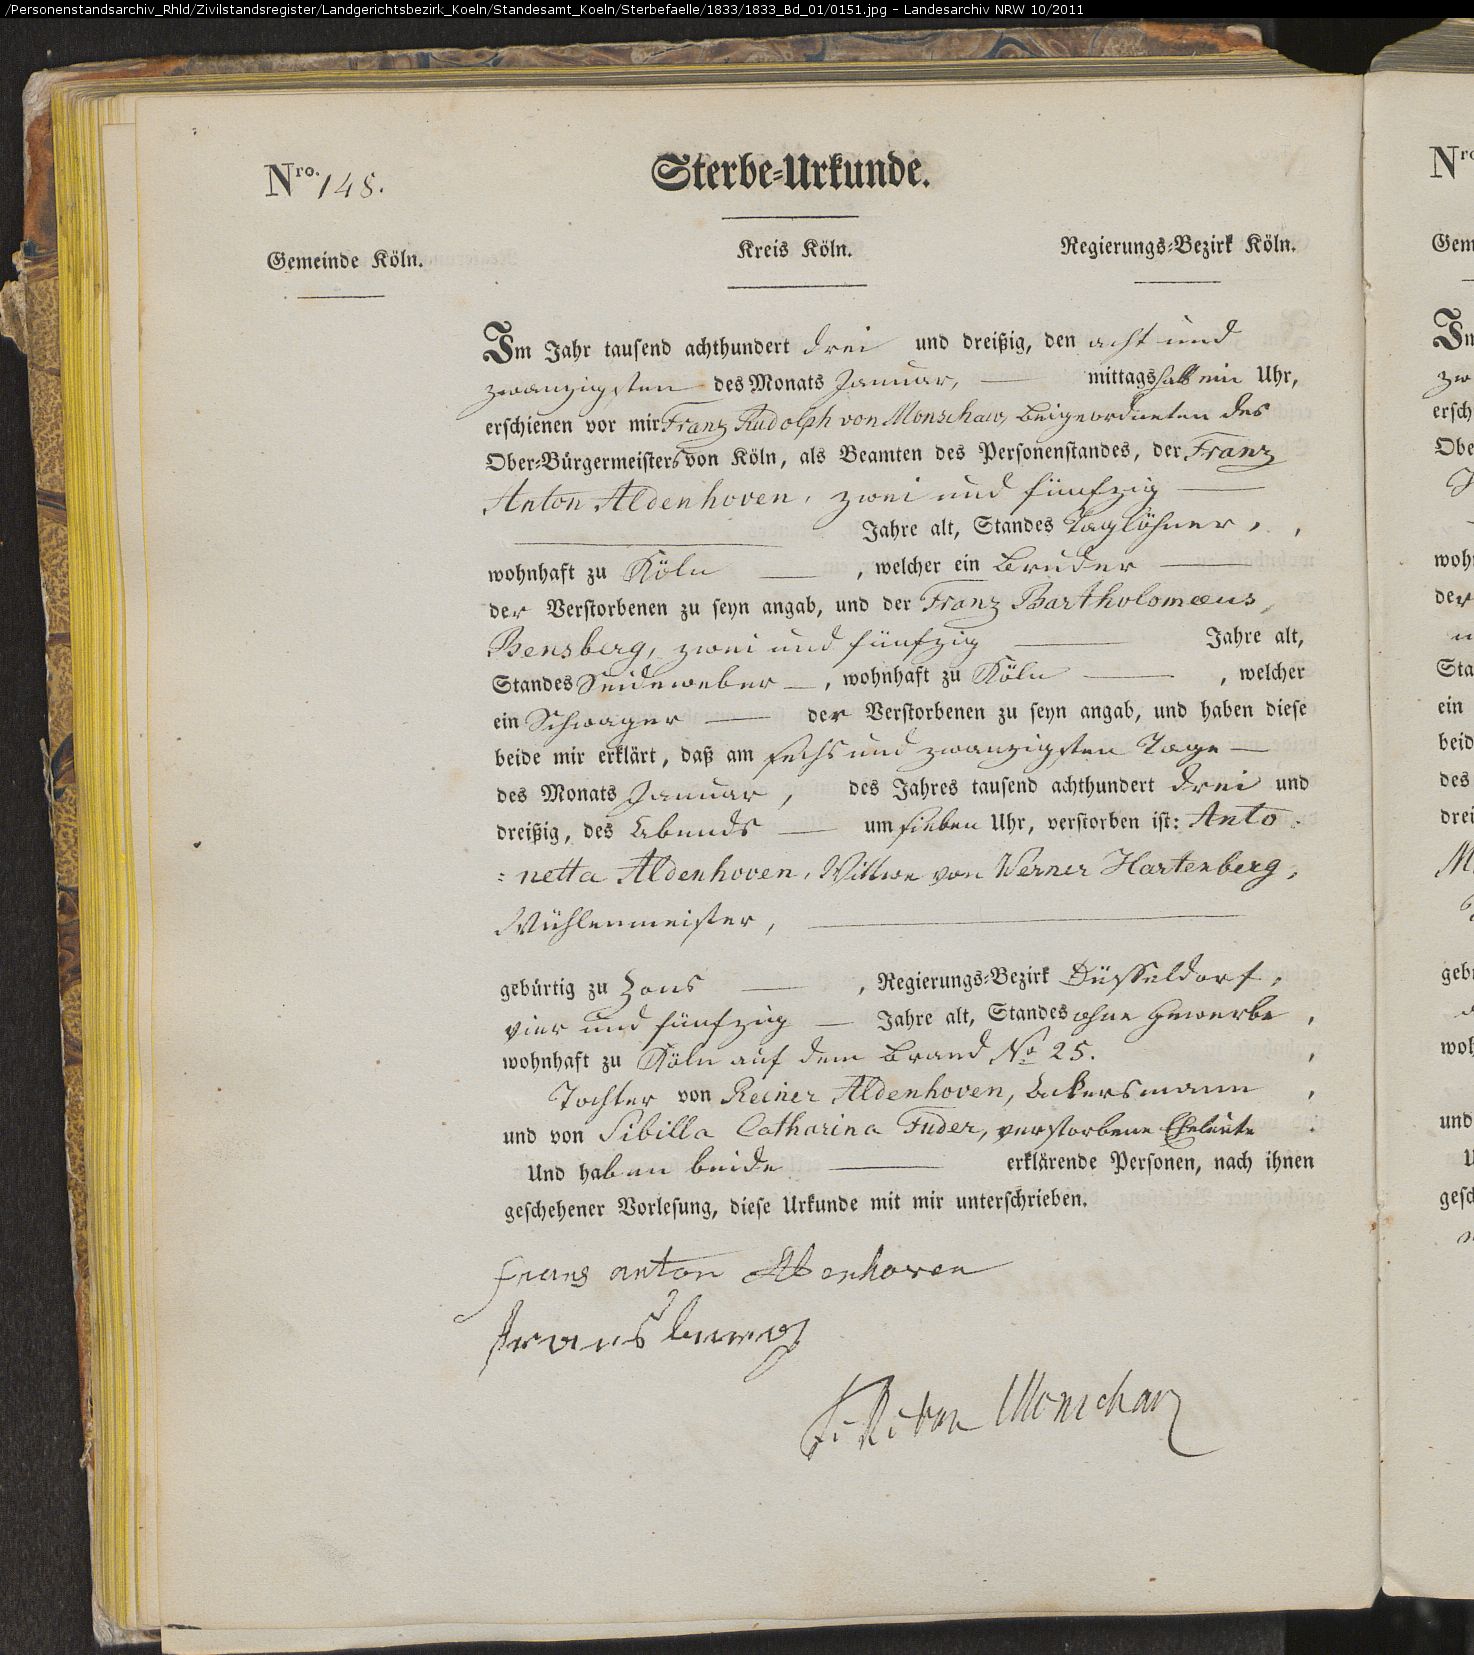 /Personenstandsarchiv_Rhld/Zivilstandsregister/Landgerichtsbezirk_Koeln/Standesamt_Koeln/Sterbefaelle/1833/1833_Bd_01/0151.jpg - Landesarchiv NRW 10/2011
Nro. 148.
Sterbe-Urkunde.
Gemeinde Köln.
Kreis Köln.
Regierungs-Bezirk Köln.
Im Jahr tausend achthundert drei und dreißig, den acht und
zwanzigsten des Monats Januar, mittags halb ein Uhr,
erschienen vor mir Franz Rudolph von Monschaw, Beigeordneten des
Ober-Bürgermeisters von Köln, als Beamten des Personenstandes, der Franz
Anton Aldenhoven, zwei und fünfzig
Jahre alt, Standes Taglöhner,
wohnhaft zu Köln, welcher ein Bruder
der Verstorbenen zu seyn angab, und der Franz Bartholomæus
Bensberg, zwei und fünfzig Jahre alt,
Standes Seideweber, wohnhaft zu Köln, welcher
ein Schwager der Verstorbenen zu seyn angab, und haben diese
beide mir erklärt, daß am sechs und zwanzigsten Tage
des Monats Januar, des Jahres tausend achthundert drei und
dreißig, des Abends um sieben Uhr, verstorben ist: Anto=
=netta Aldenhoven, Wittwe von Werner Hartenberg,
Mühlenmeister,
gebürtig zu Zons, Regierungs-Bezirk Düsseldorf,
vier und fünfzig Jahre alt, Standes ohne Gewerbe,
wohnhaft zu Köln auf dem Brand No 25.
Tochter von Reiner Aldenhoven, Ackersmann,
und von Sibilla Catharina Fuder, verstorbene Eheleute
Und haben beide erklärende Personen, nach ihnen
geschehener Vorlesung, diese Urkunde mit mir unterschrieben.
franz anton Aldenhoven
F. R. von Monschaw
Nro
Gem
Im
zw
ersch
Ober
wohn
der
Sta
ein
beid
des
drei
geb
woh
und
U
gesch